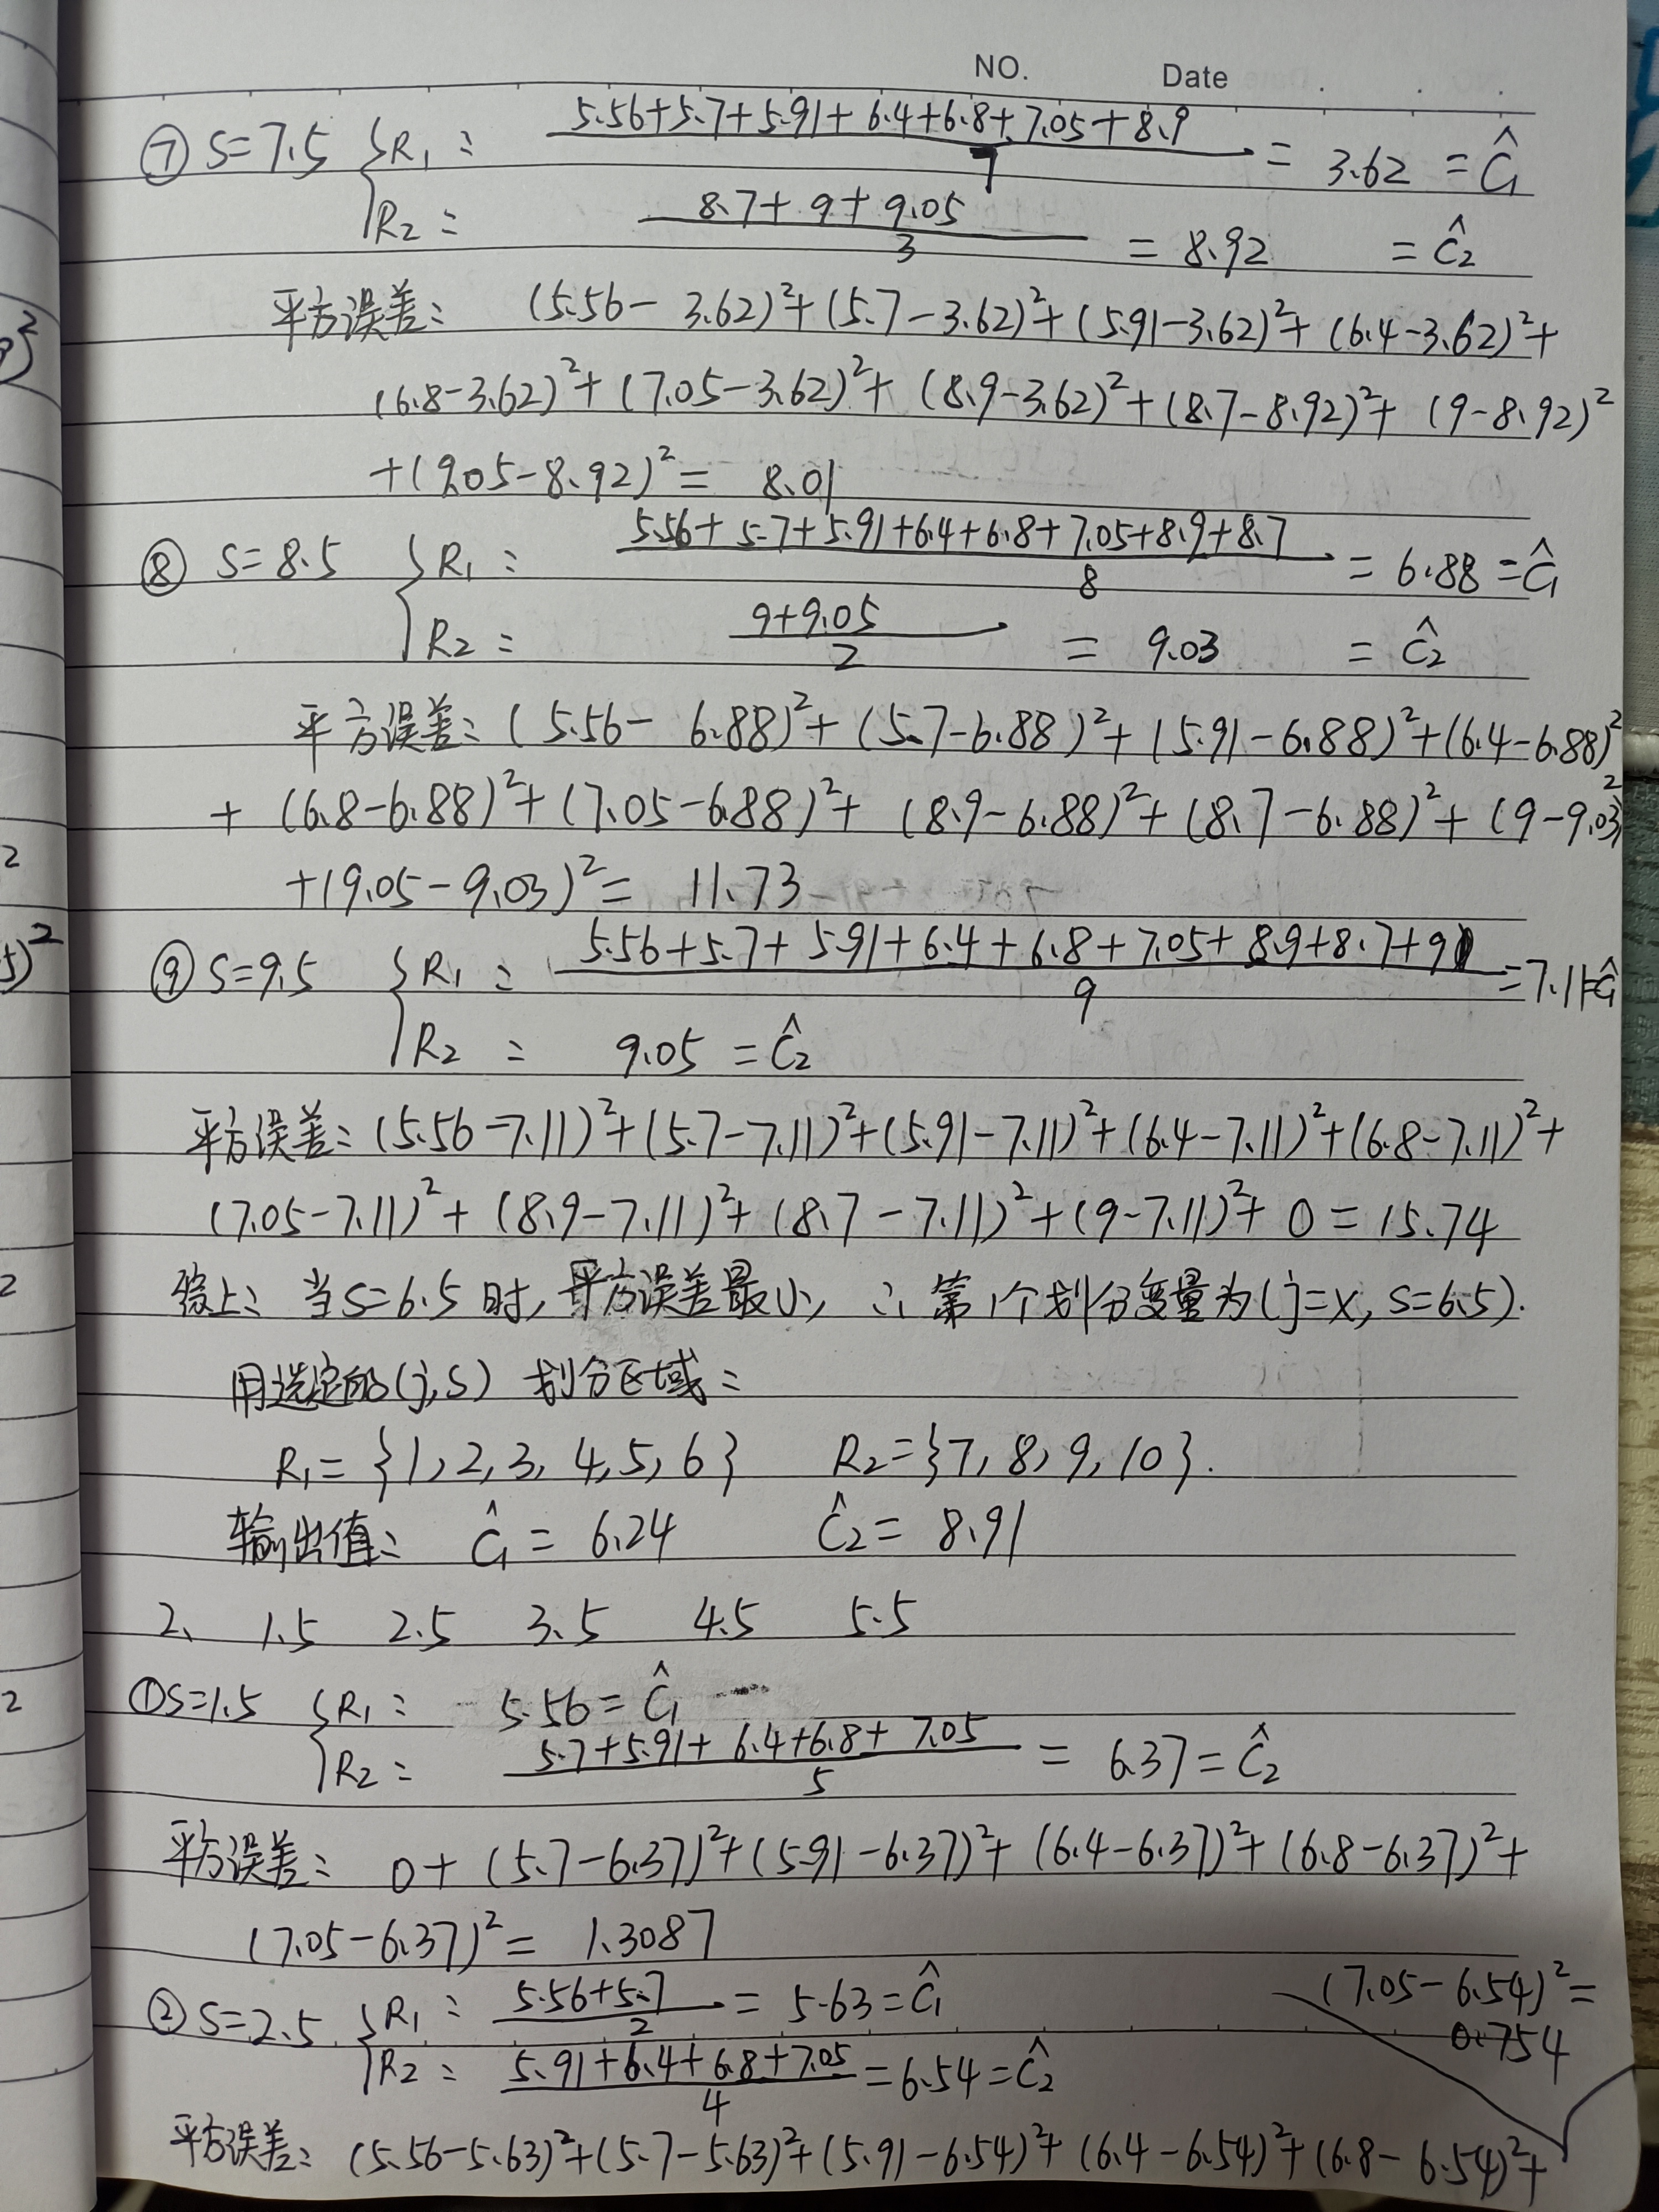 NO. Date
⑦ S=7.5 { R₁: (5.56+5.7+5.91+6.4+6.8+7.05+8.9)/7 = 3.62 = Ĉ₁
R₂: (8.7+9+9.05)/3 = 8.92 = Ĉ₂
平方误差: (5.56-3.62)²+(5.7-3.62)²+(5.91-3.62)²+(6.4-3.62)²+
(6.8-3.62)²+(7.05-3.62)²+(8.9-3.62)²+(8.7-8.92)²+(9-8.92)²
+(9.05-8.92)²= 8.01
⑧ S=8.5 { R₁: (5.56+5.7+5.91+6.4+6.8+7.05+8.9+8.7)/8 = 6.88 = Ĉ₁
R₂: (9+9.05)/2 = 9.03 = Ĉ₂
平方误差: (5.56-6.88)²+(5.7-6.88)²+(5.91-6.88)²+(6.4-6.88)²
+(6.8-6.88)²+(7.05-6.88)²+(8.9-6.88)²+(8.7-6.88)²+(9-9.03)²
+(9.05-9.03)²= 11.73
⑨ S=9.5 { R₁: (5.56+5.7+5.91+6.4+6.8+7.05+8.9+8.7+9)/9 =7.11=Ĉ₁
R₂: 9.05 = Ĉ₂
平方误差: (5.56-7.11)²+(5.7-7.11)²+(5.91-7.11)²+(6.4-7.11)²+(6.8-7.11)²+
(7.05-7.11)²+(8.9-7.11)²+(8.7-7.11)²+(9-7.11)²+0=15.74
综上: 当S=6.5时, 平方误差最小, ∴第1个划分变量为(j=x, S=6.5).
用选定的(j,S) 划分区域:
R₁={1,2,3,4,5,6} R₂={7,8,9,10}.
输出值: Ĉ₁=6.24 Ĉ₂=8.91
2、 1.5 2.5 3.5 4.5 5.5
①S=1.5 { R₁: 5.56=Ĉ₁
R₂: (5.7+5.91+6.4+6.8+7.05)/5 = 6.37=Ĉ₂
平方误差: 0+(5.7-6.37)²+(5.91-6.37)²+(6.4-6.37)²+(6.8-6.37)²+
(7.05-6.37)²= 1.3087
②S=2.5 { R₁: (5.56+5.7)/2 = 5.63=Ĉ₁
R₂: (5.91+6.4+6.8+7.05)/4 =6.54=Ĉ₂
平方误差: (5.56-5.63)²+(5.7-5.63)²+(5.91-6.54)²+(6.4-6.54)²+(6.8-6.54)²+
(7.05-6.54)²=
0.754